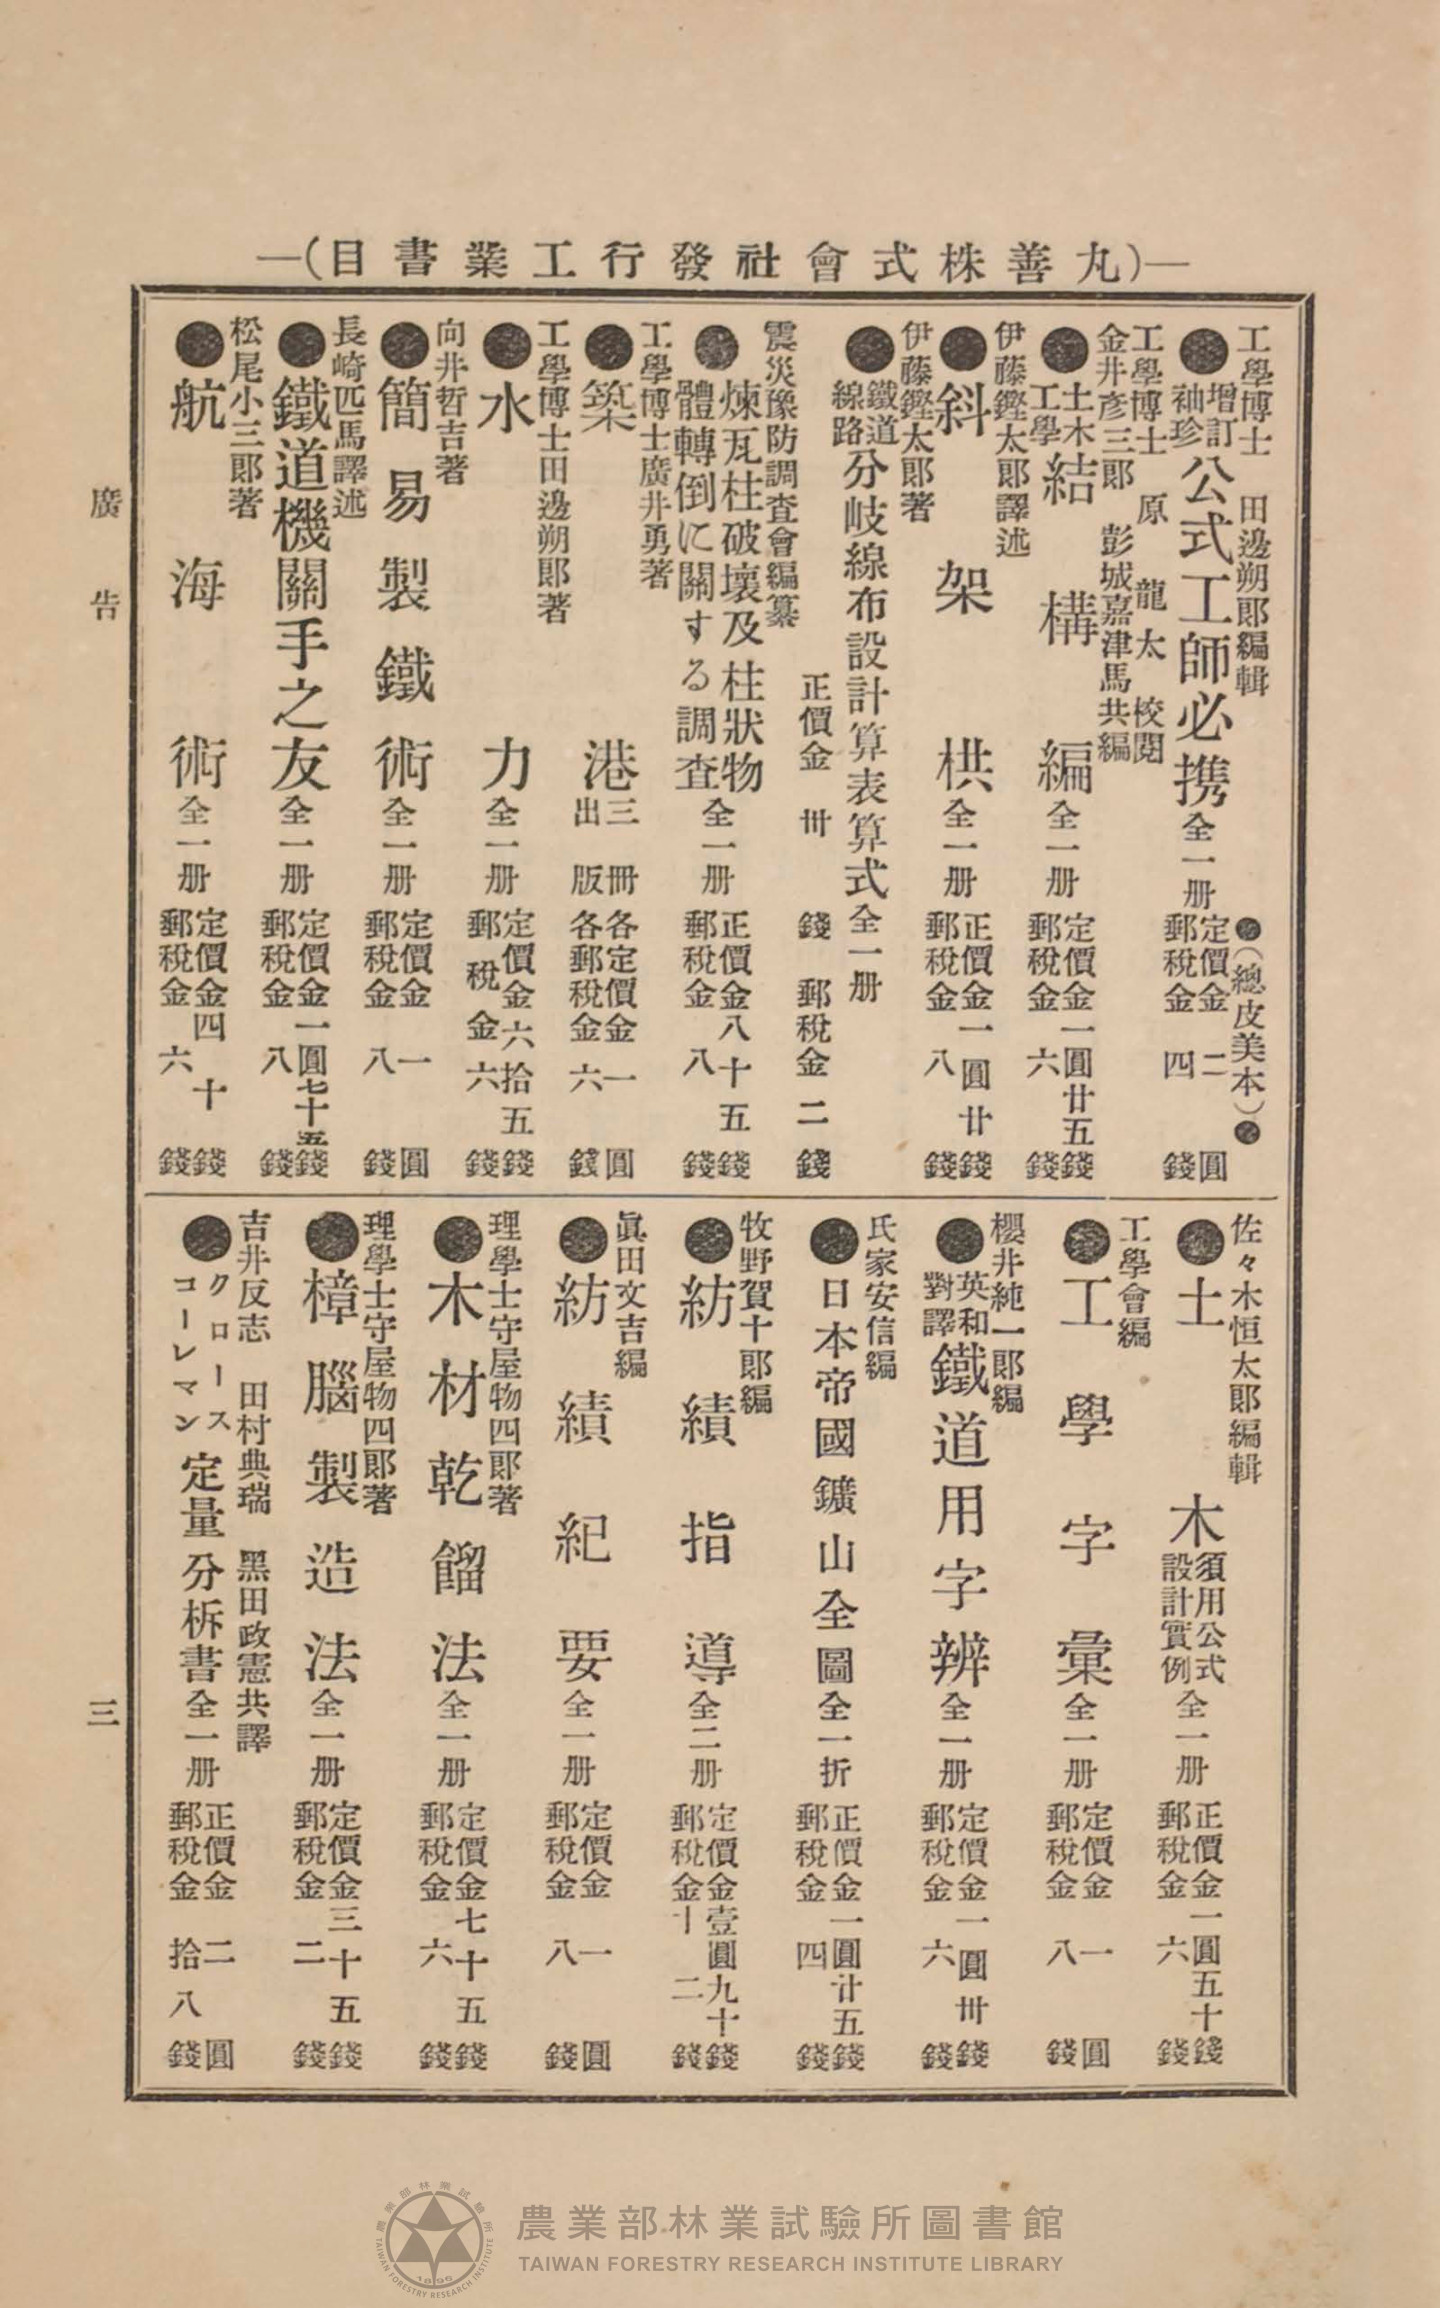 —(丸善株式會社發行工業書目)—
工學博士 田邊朔郎編輯
●增訂袖珍公式工師必携全一册 定價金二圓 郵稅金四錢
●(總皮美本)●
工學博士 原龍太校閱
金井彥三郎 彭城嘉津馬共編
●土木工學結構編全一册 定價金一圓廿五錢 郵稅金六錢
伊藤鏗太郎譯述
●斜架栱全一册 正價金一圓廿錢 郵稅金八錢
伊藤鏗太郎著
●鐵道線路分岐線布設計算表算式全一册
正價金卅錢 郵稅金二錢
震災豫防調査會編纂
●煉瓦柱破壞及柱狀物體轉倒に關する調査全一册 正價金八十五錢 郵稅金八錢
工學博士廣井勇著
●築港三冊出版 各定價金一圓 各郵稅金六錢
工學博士田邊朔郎著
●水力全一册 定價金六拾五錢 郵稅金六錢
向井哲吉著
●簡易製鐵術全一册 定價金一圓 郵稅金八錢
長崎匹馬譯述
●鐵道機關手之友全一册 定價金一圓七十五錢 郵稅金八錢
松尾小三郎著
●航海術全一册 定價金四十錢 郵稅金六錢
佐々木恒太郎編輯
●土木須用公式設計實例全一册 正價金一圓五十錢 郵稅金六錢
工學會編
●工學字彙全一册 定價金一圓 郵稅金八錢
櫻井純一郎編
●英和對譯鐵道用字辨全一册 定價金一圓卅錢 郵稅金六錢
氏家安信編
●日本帝國鑛山全圖全一折 正價金一圓廿五錢 郵稅金四錢
牧野賀十郎編
●紡績指導全二册 定價金壹圓九十錢 郵稅金十二錢
眞田文吉編
●紡績紀要全一册 定價金一圓 郵稅金八錢
理學士守屋物四郎著
●木材乾餾法全一册 定價金七十五錢 郵稅金六錢
理學士守屋物四郎著
●樟腦製造法全一册 定價金三十五錢 郵稅金二錢
吉井反志 田村典瑞 黑田政憲共譯
●クロースコーレマン定量分析書全一册 正價金二圓 郵稅金拾八錢
廣告
三
農業部林業試驗所圖書館
TAIWAN FORESTRY RESEARCH INSTITUTE LIBRARY
農業部林業試驗所
TAIWAN FORESTRY RESEARCH INSTITUTE
1896